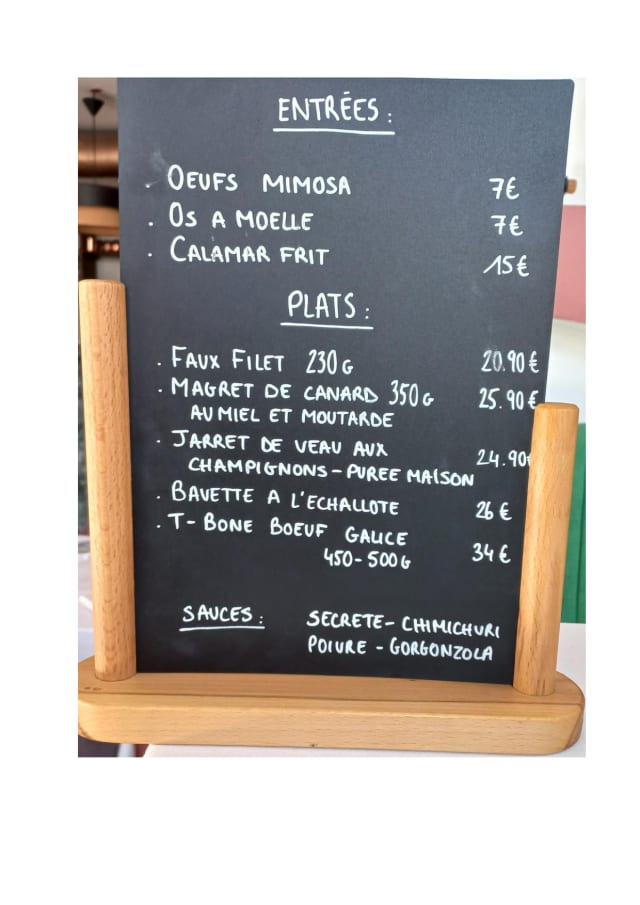 ENTRÉES :
. OEUFS MIMOSA 7€
. OS A MOELLE 7€
. CALAMAR FRIT 15€
PLATS :
. FAUX FILET 230G 20.90€
. MAGRET DE CANARD 350G 25.90€
AU MIEL ET MOUTARDE
. JARRET DE VEAU AUX 24.90€
CHAMPIGNONS - PUREE MAISON
. BAVETTE A L'ECHALLOTE 26€
. T-BONE BOEUF GALICE
450-500G 34€
SAUCES : SECRETE - CHIMICHURI
POIVRE - GORGONZOLA